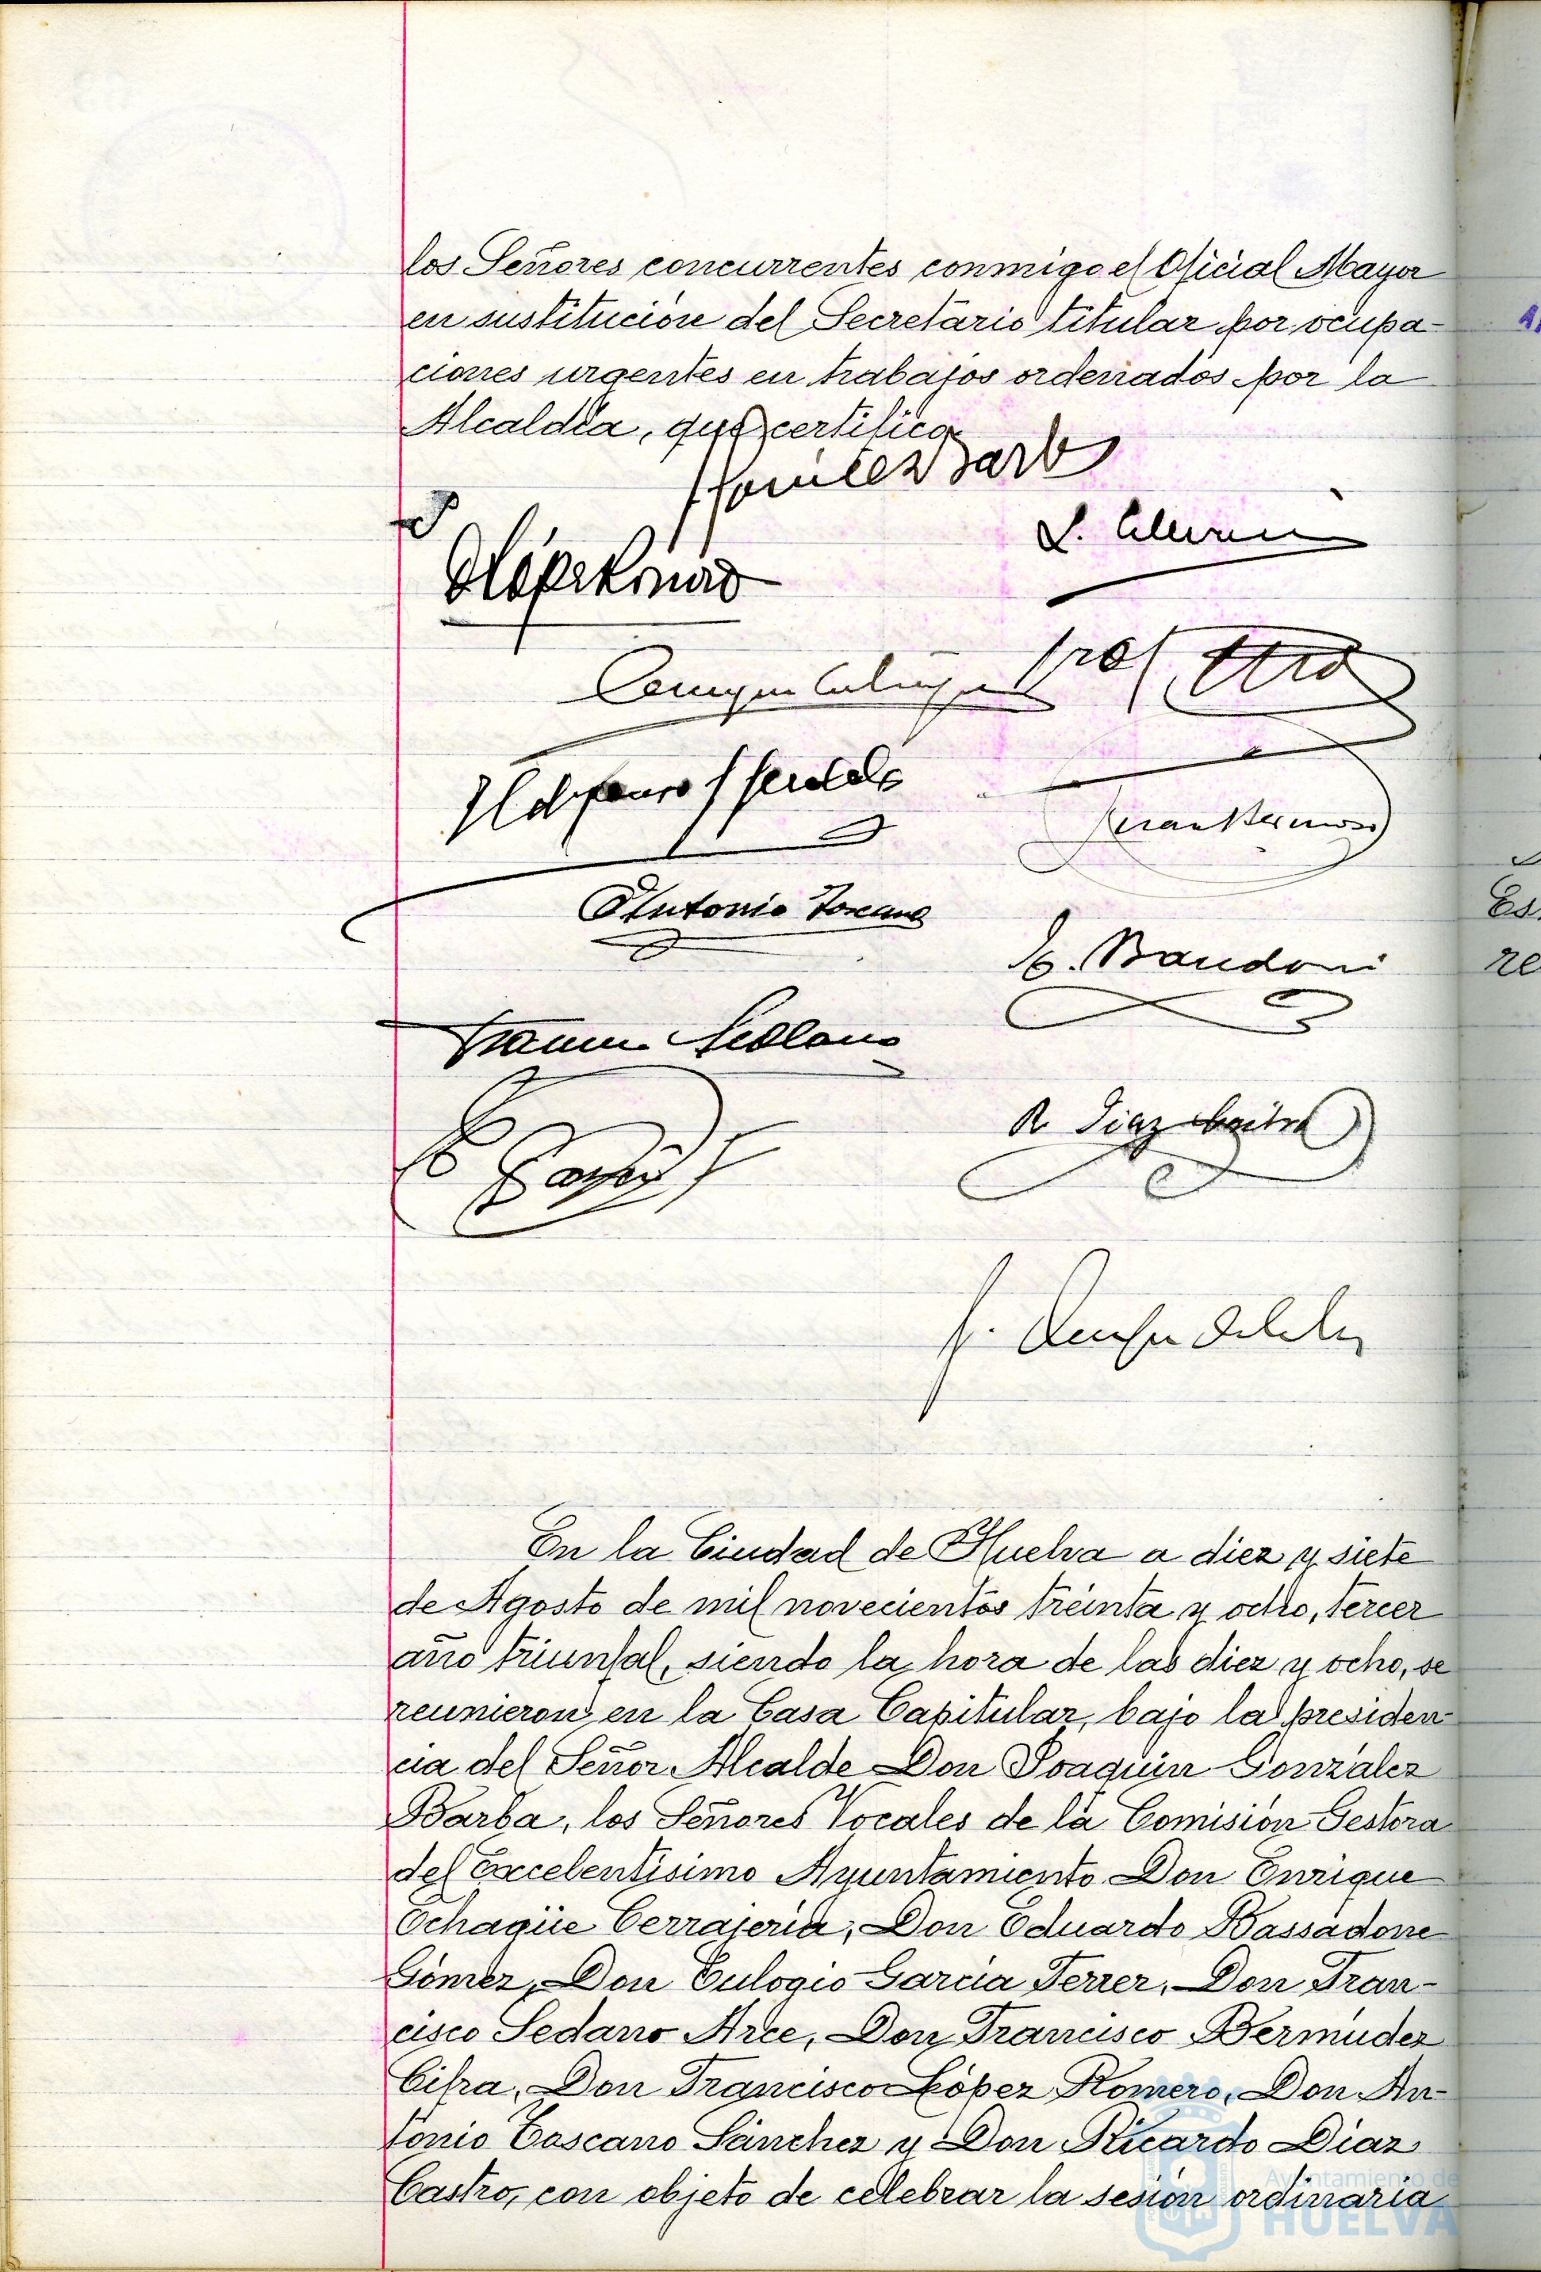 los Señores concurrentes conmigo el Oficial Mayor
en sustitución del Secretario titular por ocupa-
ciones urgentes en trabajos ordenados por la
Alcaldía, que certifico.
González Barba
F. López Romero
Antonio Toscano
E. Bassadoni
Francisco Sedano
R Diaz Castro
En la Ciudad de Huelva a diez y siete
de Agosto de mil novecientos treinta y ocho, tercer
año triunfal, siendo la hora de las diez y ocho, se
reunieron en la Casa Capitular, bajo la presiden-
cia del Señor Alcalde Don Joaquín González
Barba, los Señores Vocales de la Comisión Gestora
del Excelentísimo Ayuntamiento Don Enrique
Ochagüe Cerrajería, Don Eduardo Bassadone
Gómez, Don Eulogio García Ferrer, Don Fran-
cisco Sedano Arce, Don Francisco Bermúdez
Cifra, Don Francisco López Romero, Don An-
tonio Toscano Sánchez y Don Ricardo Díaz
Castro, con objeto de celebrar la sesión ordinaria
Ayuntamiento de
HUELVA
Es
re